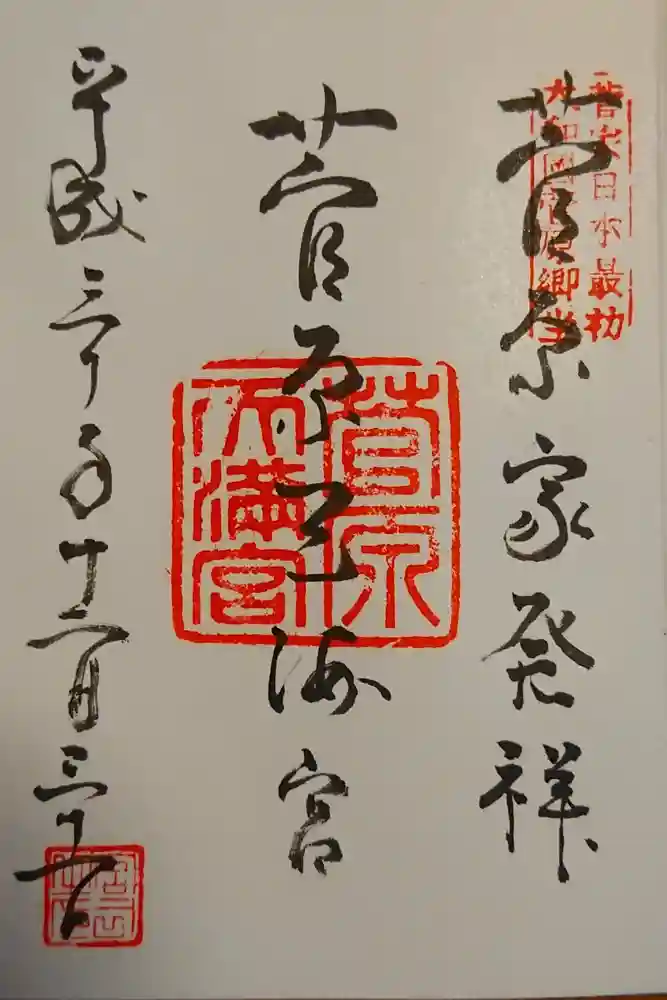 菅家日本最初
大和國菅原郷
菅原家発祥
菅原天満宮
菅原
天満宮
平成三十年十二月三十一日